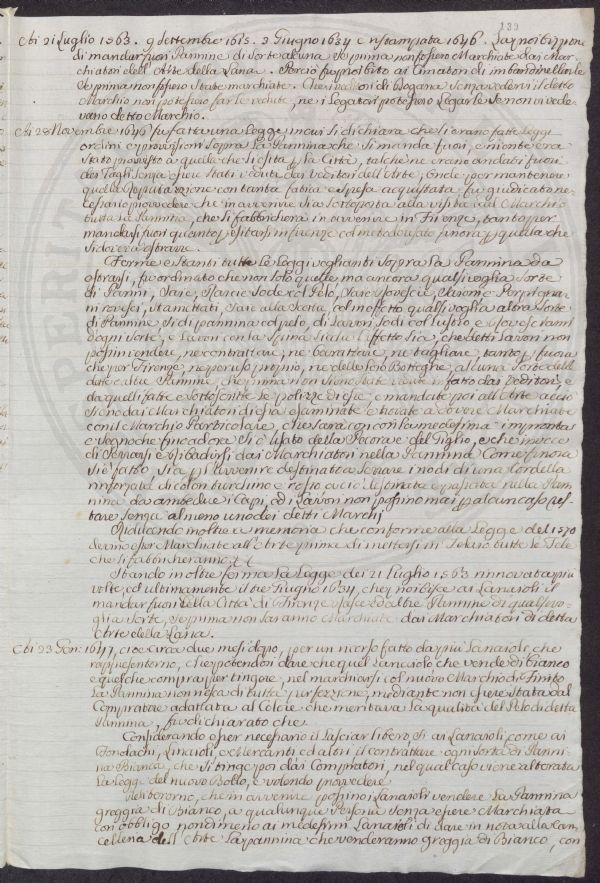 139
Adi 21 Luglio 1563. 9 Settembre 1615. 2 Giugno 1634 e ristampata 1646. La proibizione
di mandar fuori Pannine di sorte alcuna se prima non fossero Marchiate dai Mar-
chiatori dell'Arte della Lana. Perciò fu proibito ai Legatori di imbandellarle
se prima non fossero state marchiate. Che i ministri di Dogana senza vedervi il detto
Marchio non potessero far le vedute, ne i Legatori potessero Legarle se non vi vede-
vano detto Marchio.
Adi 28 Novembre 1646 fu fatta una Legge, in cui si dichiara che si erano fatte Leggi
ordini e provvisioni sopra la Pannina che si manda fuori, e niente era
stato provvisto a quella che si esita p la Città, talche ne erano andati fuori
dei Tagli senza essere stati veduti dai veditori dell'Arte, Onde per mantenere
quella reputazione con tanta fatica e spesa acquistata fu giudicato ne-
cessario provvedere che in avvenire sia sottoposta alla visita ed al Marchio
tutta la Pannina, che si fabbricherà in avvenire in Firenze, tanto per
mandarsi fuori quanto p esitarsi in Firenze col metodo usato finora p quella che
si doveva estrarre.
Ferme e stanti tutte le Leggi veglianti sopra la Pannina da
estrarsi, fu ordinato che non solo quelle ma ancora qualsivoglia sorte
di Panni, Saie, Rascie Sode e col Pelo, Saie rovescie, Saioni e Perpignani-
ni rovesci, Stamettati, Saie alla Scotta col in effetto qualsivoglia altra sorte
di Pannine sì di pannina col pelo, di Lavori Sodi col lustro e rovesci rami
d'ogni sorte, e Lavori con la Spina sicchè l'effetto sia, che detti Lavori non
possin vendere, ne contrattare, ne barattare, ne tagliare, tanto p fuora
che per Firenze, ne per uso proprio, ne delle loro Botteghe alcuna sorte delle
dette e altre Pannine, che prima non siano state vedute in fatto dai veditori, e
da quelli fatte e sottoscritte le polizze di esse e mandate poi all'Arte acciò
siano dai Marchiatori di essa esaminate e trovate a dovere Marchiate
con il Marchio Particolare, che sarà con la medesima impronta
e segno che fin ad ora si è usato della Pecora e del Giglio, e che invece
di serrarsi e ribadirsi dai Marchiatori nella Pannina come finora
si è fatto, sia p l'avvenire destinato a serrare i nodi di una Cordella
rinforzata di color turchino e rosso a ciò destinata e passata nella Pan-
nina da ambedue i Capi, ed i Lavori non possino mai p alcun caso res-
tare senza almeno uno dei detti Marchj
Riducendo inoltre a memoria che conforme alla Legge del 1570
devino esser Marchiate all'Arte prima di mettersi in Telaio tutte le Tele
che si fabbricheranno &c
Stando in oltre ferma la Legge dei 21 Luglio 1563 rinnovata più
volte, ed ultimamente il dì 2 Giugno 1634, che proibisce ai Lanaioli il
mandar fuori della Città di Firenze rasce ed altre Pannine di qualsivo-
glia sorte, se prima non saranno Marchiate dai Marchiatori di detta
Arte della Lana.
Adi 23 Gen: 1647, cioè circa due mesi dopo, per un ricorso fatto da più Lanaioli, che
rappresentorno, che potendosi dare che quel Lanaiolo che vende di bianco
e quel che compra per tingere, nel marchiarsi col nuovo Marchio di Finito
La Pannina non riesca di tutta perfezzione, mediante non essere stata dal
Compratore adattata al Colore che meritava la qualità del Pelo di detta
Pannina, fu dichiarato che
Considerando esser necessario il lasciar libero, sì ai Lanaioli come ai
Fondachi, Linaioli e Mercanti ed altri il contrattare ogni sorta di Panni-
na Bianca, che si tinge poi dai Compratori, nel qual caso viene alterata
La Legge del nuovo Bollo, e volendo provvedere
Deliberorno, che in avvenire possino i Lanaioli vendere la Pannina
greggia di Bianco, a qualunque Persona senza essere Marchiata
con obbligo nondimeno ai medesimi Lanaioli di dare in nota alla Can-
celleria dell'Arte la pannina che venderanno greggia di Bianco, con